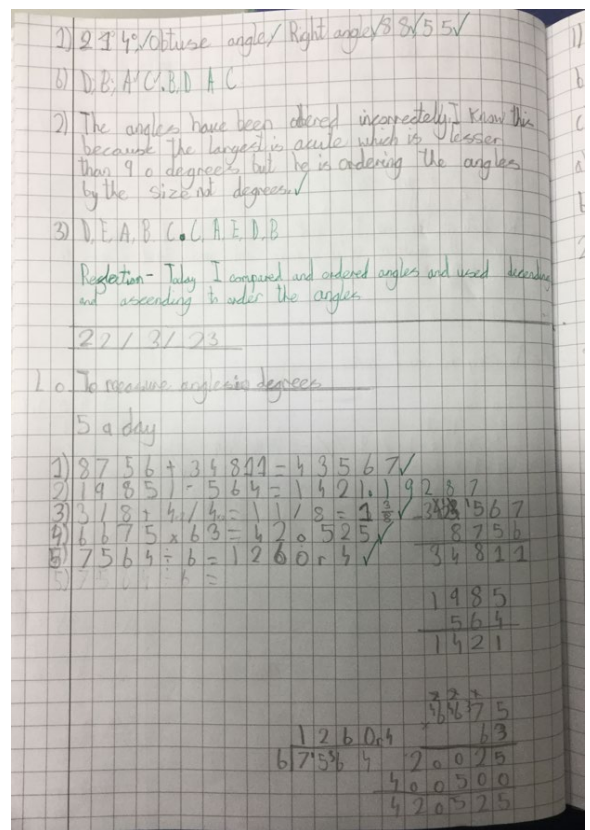 1) 2 1° 4° ✓ Obtuse angle / Right angle / 8 8 ✓ 5 5 ✓
b) D, B, A C. B, D A C
2) The angles have been odered incorrectely. I know this
because the largest is acute which is lesser
than 90 degrees but he is ordering the angles
by the size not degrees. ✓
3) D, E, A, B C. C, A, E, D, B
Reflection - Today I compared and ordered angles and used decending
and ascending to order the angles
22 / 3 / 23
L o. To measure angles in degrees
5 a day
1) 8756 + 34811 = 43567 ✓
2) 19851 - 564 = 1421. 19287
3) 3/8 + 4/4 = 11/8 = 1 3/8 ✓
4) 6675 x 63 = 420525 ✓
5) 7564 ÷ 6 = 1260 r 4 ✓
43567
8756
34811
1985
564
1421
6675
x 63
20025
400500
420525
1260r4
6 7564